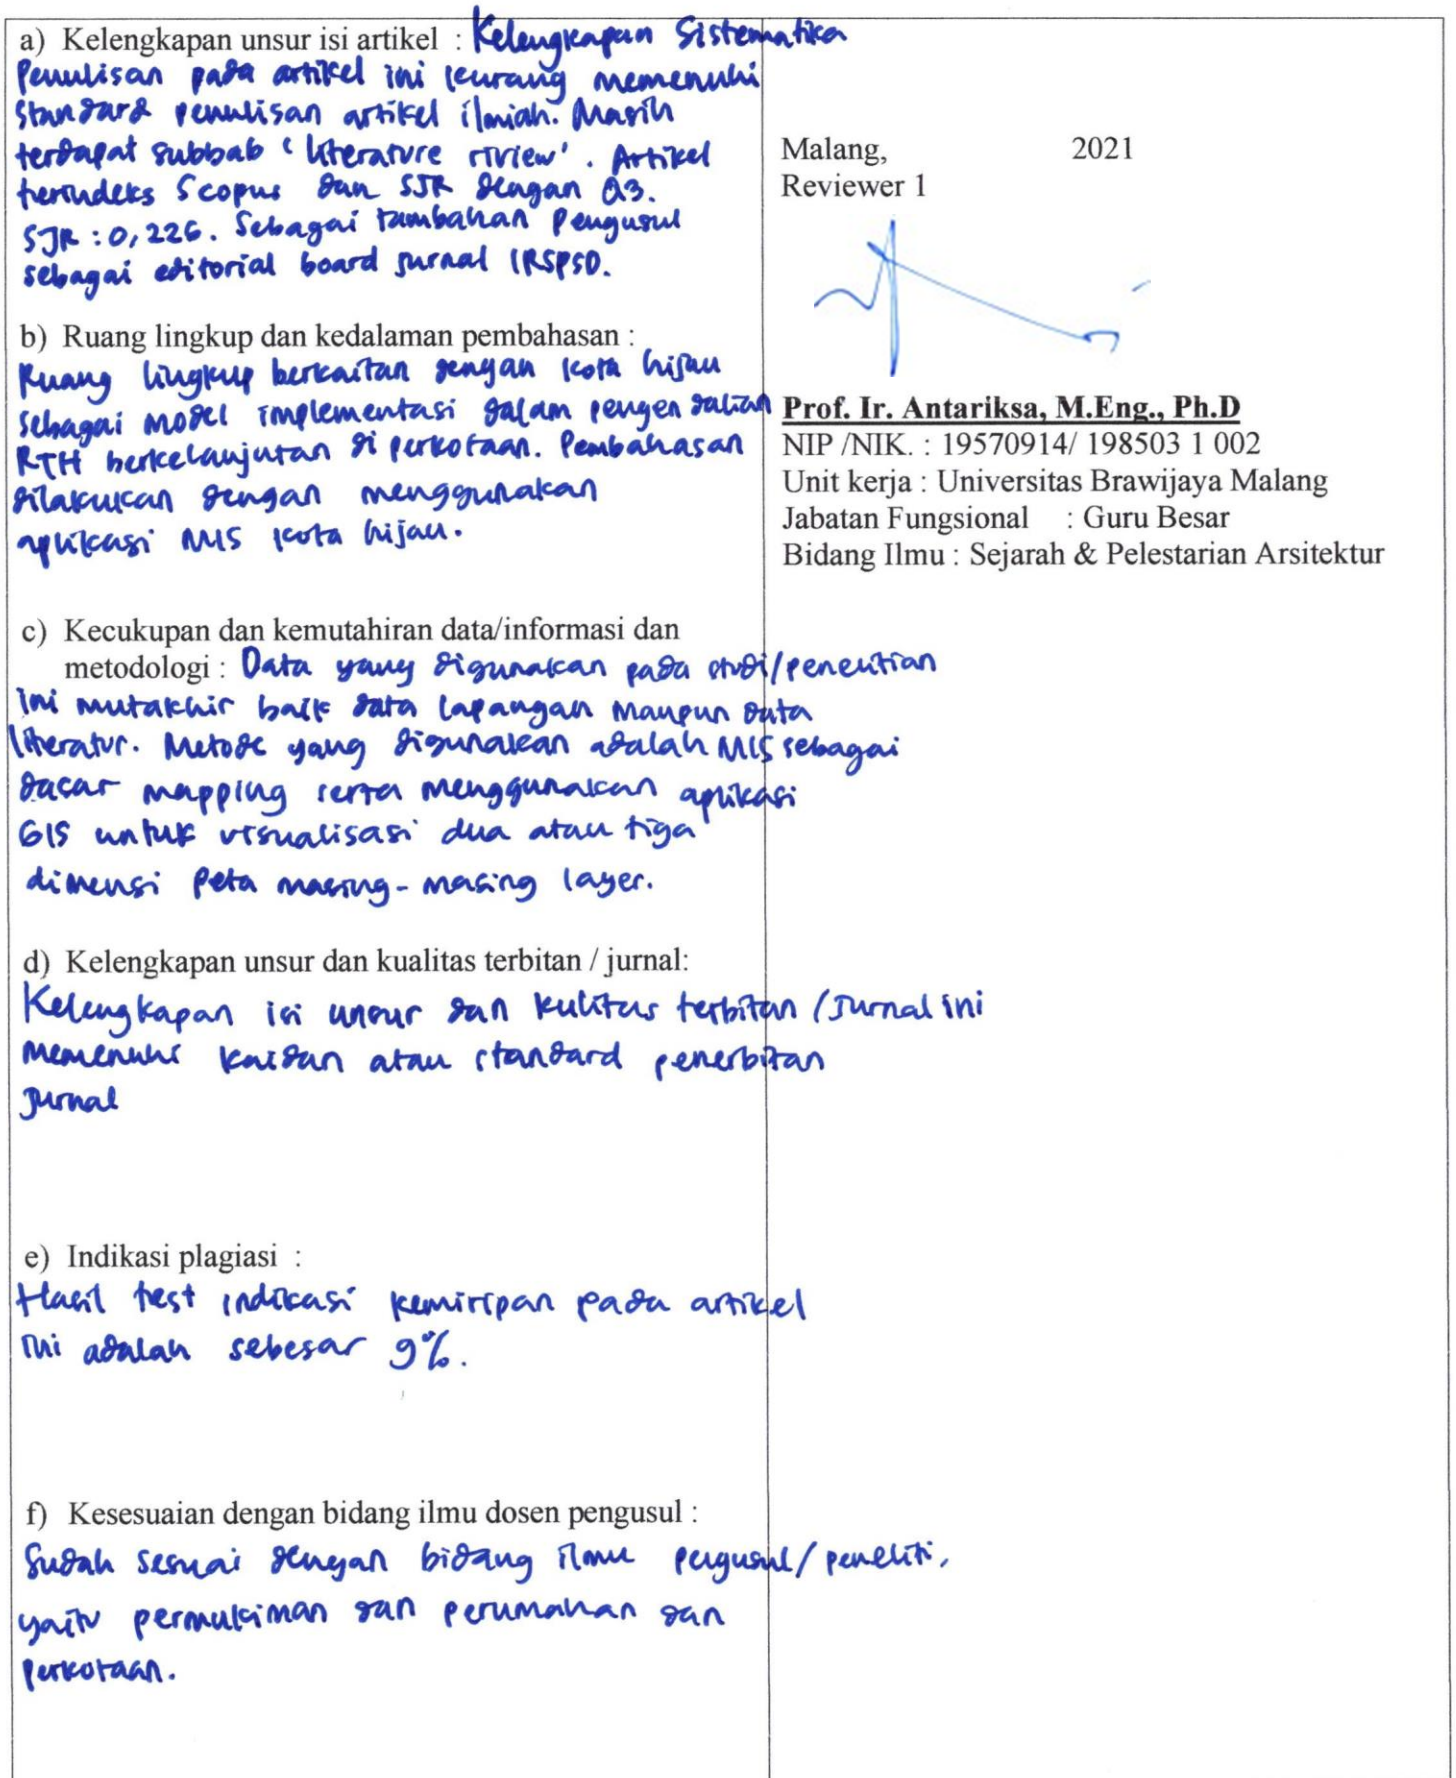 a) Kelengkapan unsur isi artikel : Kelengkapan Sistematika
Penulisan pada artikel ini kurang memenuhi
Standard penulisan artikel ilmiah. Masih
terdapat subbab 'literature riview'. Artikel
terindeks Scopus dan SJR dengan Q3.
SJR : 0,226. Sebagai tambahan Pengusul
sebagai editorial board jurnal IRSPSD.
b) Ruang lingkup dan kedalaman pembahasan :
Ruang lingkup berkaitan dengan kota hijau
sebagai model implementasi dalam pengendalian
RTH berkelanjutan di perkotaan. Pembahasan
dilakukan dengan menggunakan
aplikasi MIS kota hijau.
c) Kecukupan dan kemutahiran data/informasi dan
metodologi : Data yang digunakan pada studi/penelitian
ini mutakhir baik data lapangan maupun data
literatur. Metode yang digunakan adalah MIS sebagai
dasar mapping serta menggunakan aplikasi
GIS untuk visualisasi dua atau tiga
dimensi peta masing-masing layer.
d) Kelengkapan unsur dan kualitas terbitan / jurnal:
Kelengkapan isi unsur dan kulitas terbitan/Jurnal ini
memenuhi kaidah atau standard penerbitan
Jurnal
e) Indikasi plagiasi :
Hasil test indikasi kemiripan pada artikel
ini adalah sebesar 9%.
f) Kesesuaian dengan bidang ilmu dosen pengusul :
Sudah sesuai dengan bidang ilmu pengusul/peneliti,
yaitu permukiman dan perumahan dan
perkotaan.
Malang, 2021
Reviewer 1
Prof. Ir. Antariksa, M.Eng., Ph.D
NIP /NIK. : 19570914/ 198503 1 002
Unit kerja : Universitas Brawijaya Malang
Jabatan Fungsional : Guru Besar
Bidang Ilmu : Sejarah & Pelestarian Arsitektur